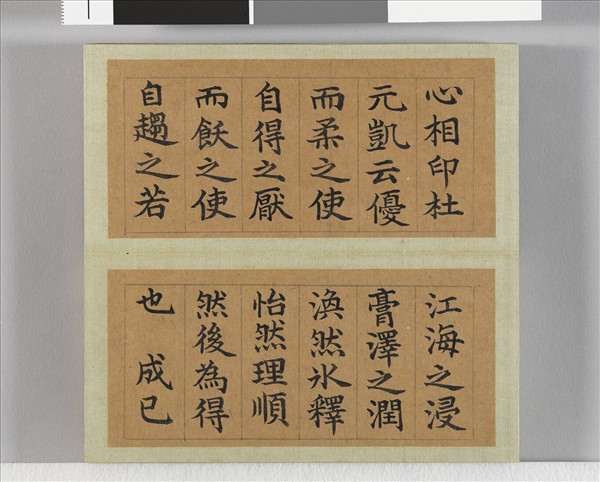 心相印杜
元凱云優
而柔之使
自得之厭
而飫之使
自趨之若
江海之浸
膏澤之潤
渙然冰釋
怡然理順
然後為得
也 成已